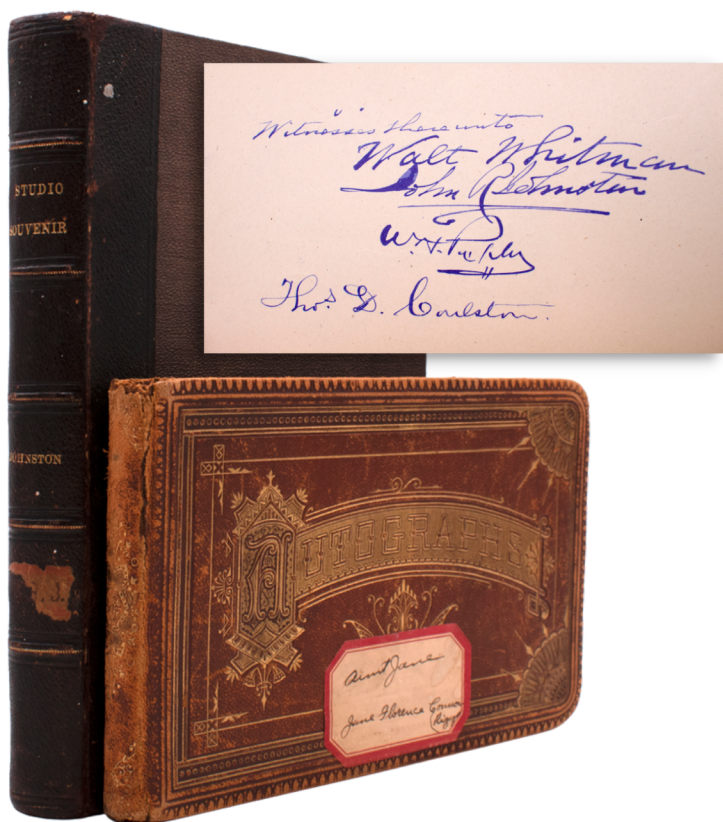 STUDIO
SOUVENIR
JOHNSTON
Witnesses thereunto
Walt Whitman
John R Johnston
Thos D. Coulston.
AUTOGRAPHS
Aunt Jane
Jane Florence